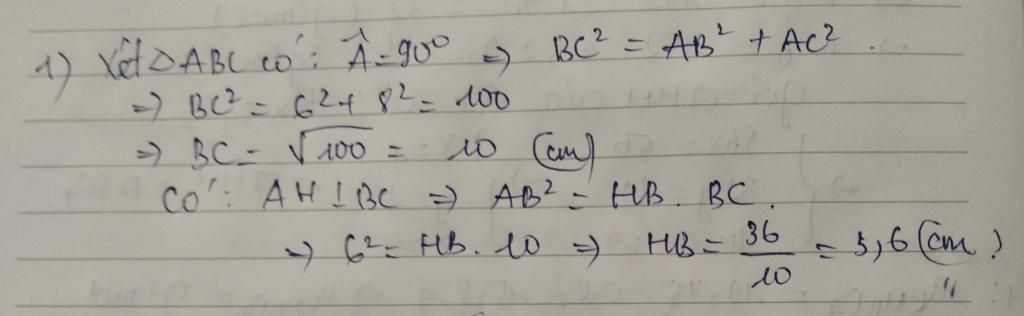 1) Xét △ABC có: Â=90° => BC² = AB² + AC².
=> BC² = 6²+ 8² = 100
=> BC = √100 = 10 (cm)
Có: AH⊥BC => AB² = HB. BC.
=> 6² = HB. 10 => HB = 36/10 = 3,6 (cm)